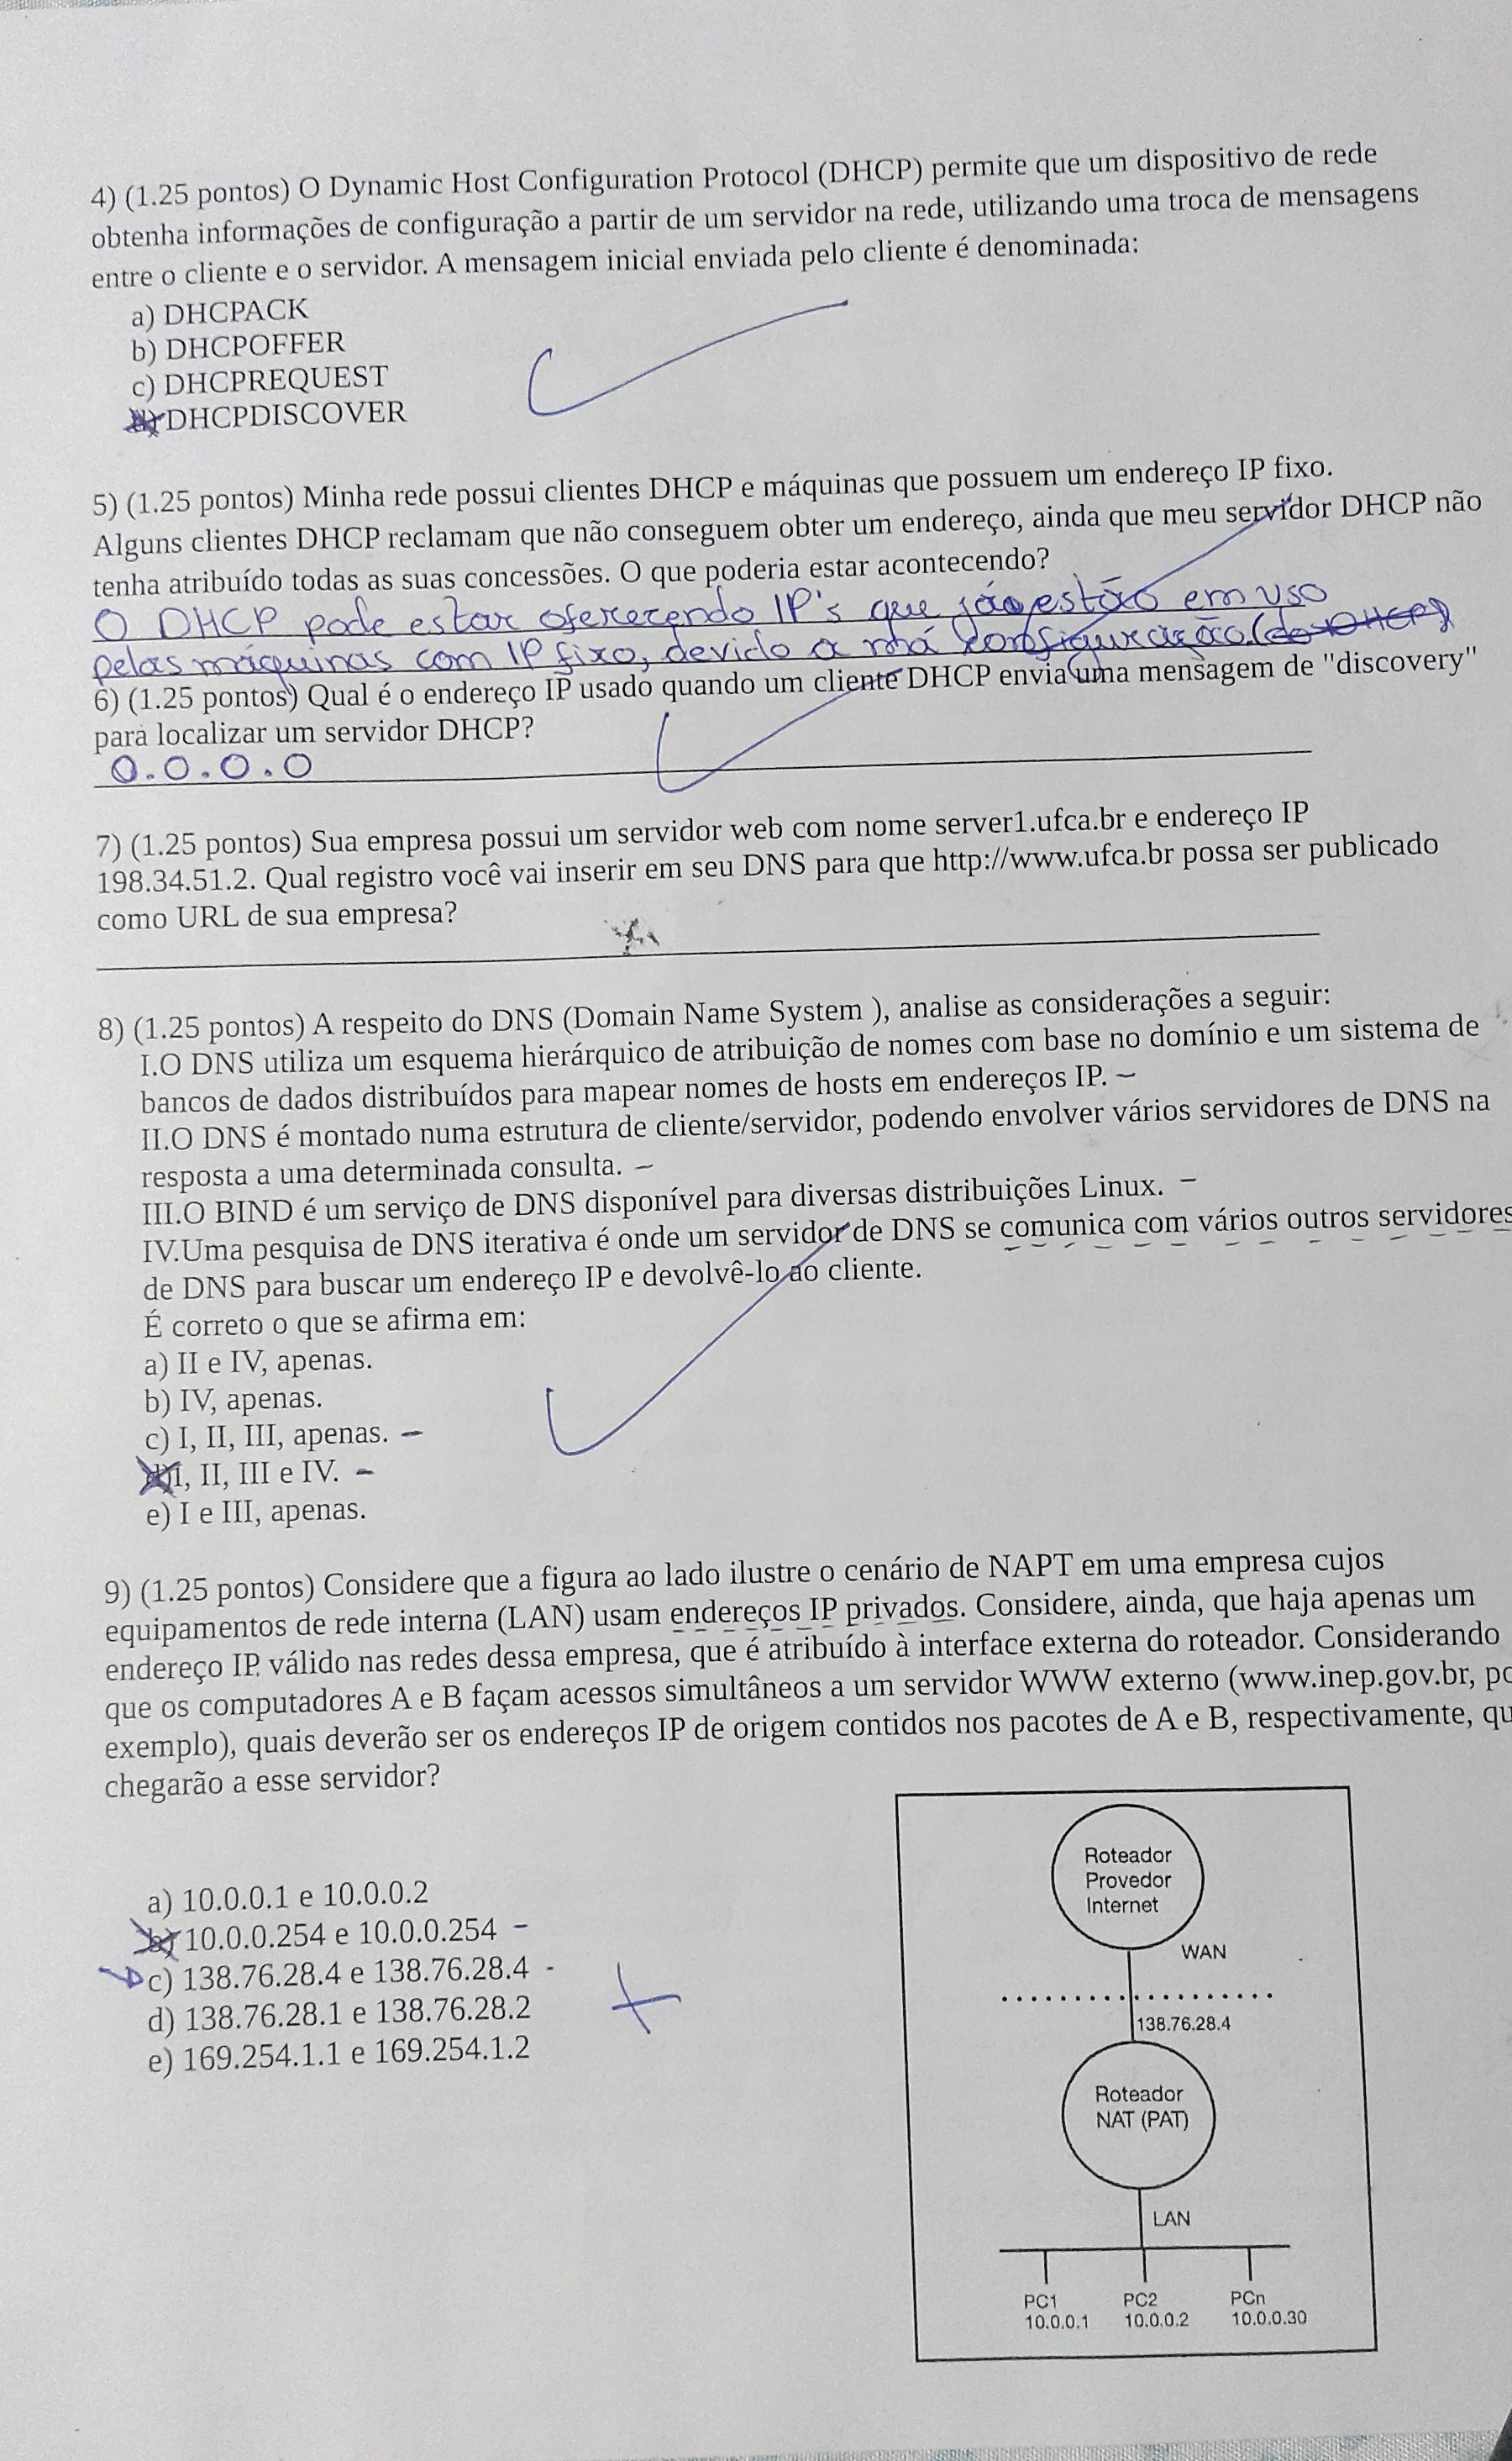 4) (1.25 pontos) O Dynamic Host Configuration Protocol (DHCP) permite que um dispositivo de rede
obtenha informações de configuração a partir de um servidor na rede, utilizando uma troca de mensagens
entre o cliente e o servidor. A mensagem inicial enviada pelo cliente é denominada:
a) DHCPACK
b) DHCPOFFER
c) DHCPREQUEST
d) DHCPDISCOVER
5) (1.25 pontos) Minha rede possui clientes DHCP e máquinas que possuem um endereço IP fixo.
Alguns clientes DHCP reclamam que não conseguem obter um endereço, ainda que meu servidor DHCP não
tenha atribuído todas as suas concessões. O que poderia estar acontecendo?
O DHCP pode estar oferecendo IP's que já estão em uso
pelas máquinas com IP fixo, devido a má configuração (do DHCP)
6) (1.25 pontos) Qual é o endereço IP usado quando um cliente DHCP envia uma mensagem de "discovery"
para localizar um servidor DHCP?
0.0.0.0
7) (1.25 pontos) Sua empresa possui um servidor web com nome server1.ufca.br e endereço IP
198.34.51.2. Qual registro você vai inserir em seu DNS para que http://www.ufca.br possa ser publicado
como URL de sua empresa?
8) (1.25 pontos) A respeito do DNS (Domain Name System ), analise as considerações a seguir:
I.O DNS utiliza um esquema hierárquico de atribuição de nomes com base no domínio e um sistema de
bancos de dados distribuídos para mapear nomes de hosts em endereços IP.
II.O DNS é montado numa estrutura de cliente/servidor, podendo envolver vários servidores de DNS na
resposta a uma determinada consulta.
III.O BIND é um serviço de DNS disponível para diversas distribuições Linux.
IV.Uma pesquisa de DNS iterativa é onde um servidor de DNS se comunica com vários outros servidores
de DNS para buscar um endereço IP e devolvê-lo ao cliente.
É correto o que se afirma em:
a) II e IV, apenas.
b) IV, apenas.
c) I, II, III, apenas.
d) I, II, III e IV.
e) I e III, apenas.
9) (1.25 pontos) Considere que a figura ao lado ilustre o cenário de NAPT em uma empresa cujos
equipamentos de rede interna (LAN) usam endereços IP privados. Considere, ainda, que haja apenas um
endereço IP válido nas redes dessa empresa, que é atribuído à interface externa do roteador. Considerando
que os computadores A e B façam acessos simultâneos a um servidor WWW externo (www.inep.gov.br, po
exemplo), quais deverão ser os endereços IP de origem contidos nos pacotes de A e B, respectivamente, qu
chegarão a esse servidor?
a) 10.0.0.1 e 10.0.0.2
b) 10.0.0.254 e 10.0.0.254
c) 138.76.28.4 e 138.76.28.4
d) 138.76.28.1 e 138.76.28.2
e) 169.254.1.1 e 169.254.1.2
Roteador
Provedor
Internet
WAN
138.76.28.4
Roteador
NAT (PAT)
LAN
PC1 PC2 PCn
10.0.0.1 10.0.0.2 10.0.0.30